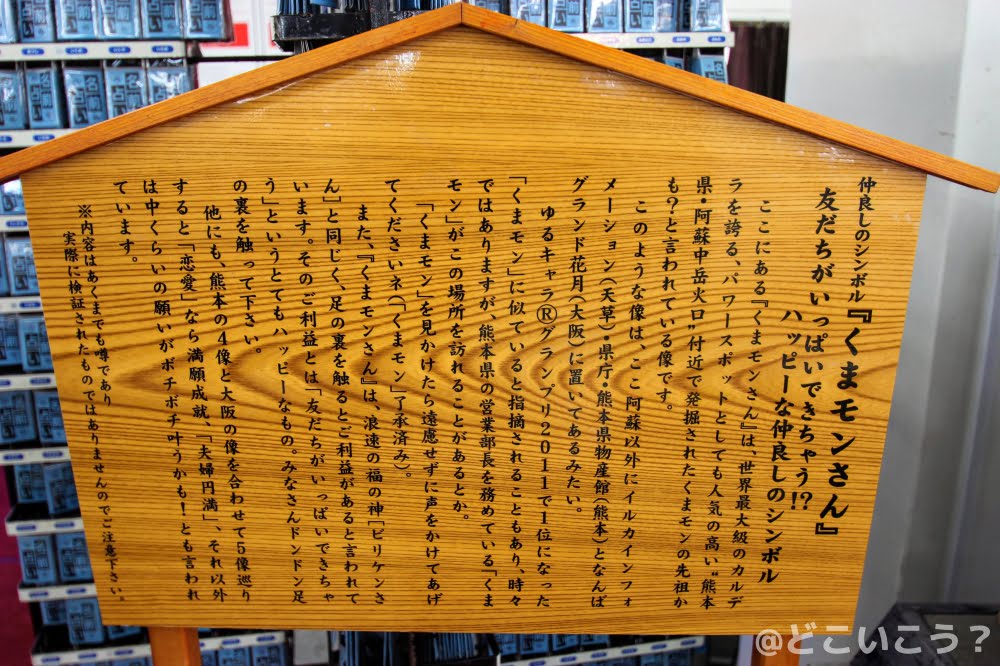 仲良しのシンボル『くまモンさん』
友だちがいっぱいできちゃう!?
ハッピーな仲良しのシンボル
ここにある『くまモンさん』は、世界最大級のカルデ
ラを誇る、パワースポットとしても人気の高い“熊本
県・阿蘇中岳火口”付近で発掘されたくまモンの先祖か
も?と言われている像です。
このような像は、ここ阿蘇以外にイルカインフォ
メーション(天草)・県庁・熊本県物産館(熊本)となんば
グランド花月(大阪)に置いてあるみたい。
ゆるキャラⓇグランプリ2011で1位になった
「くまモン」に似ていると指摘されることもあり、時々
ではありますが、熊本県の営業部長を務めている「くま
モン」がこの場所を訪れることがあるとか。
「くまモン」を見かけたら遠慮せずに声をかけてあげ
てくださいネ(「くまモン」了承済み)。
また、『くまモンさん』は、浪速の福の神[ビリケンさ
ん]と同じく、足の裏を触るとご利益があると言われて
います。そのご利益とは「友だちがいっぱいできちゃ
う」というとてもハッピーなもの。みなさんドンドン足
の裏を触って下さい。
他にも、熊本の4像と大阪の像を合わせて5像巡り
すると「恋愛」なら満願成就、「夫婦円満」、それ以外
は中くらいの願いがボチボチ叶うかも!とも言われ
ています。
※内容はあくまでも噂であり
実際に検証されたものではありませんのでご注意下さい。
@どこいこう?